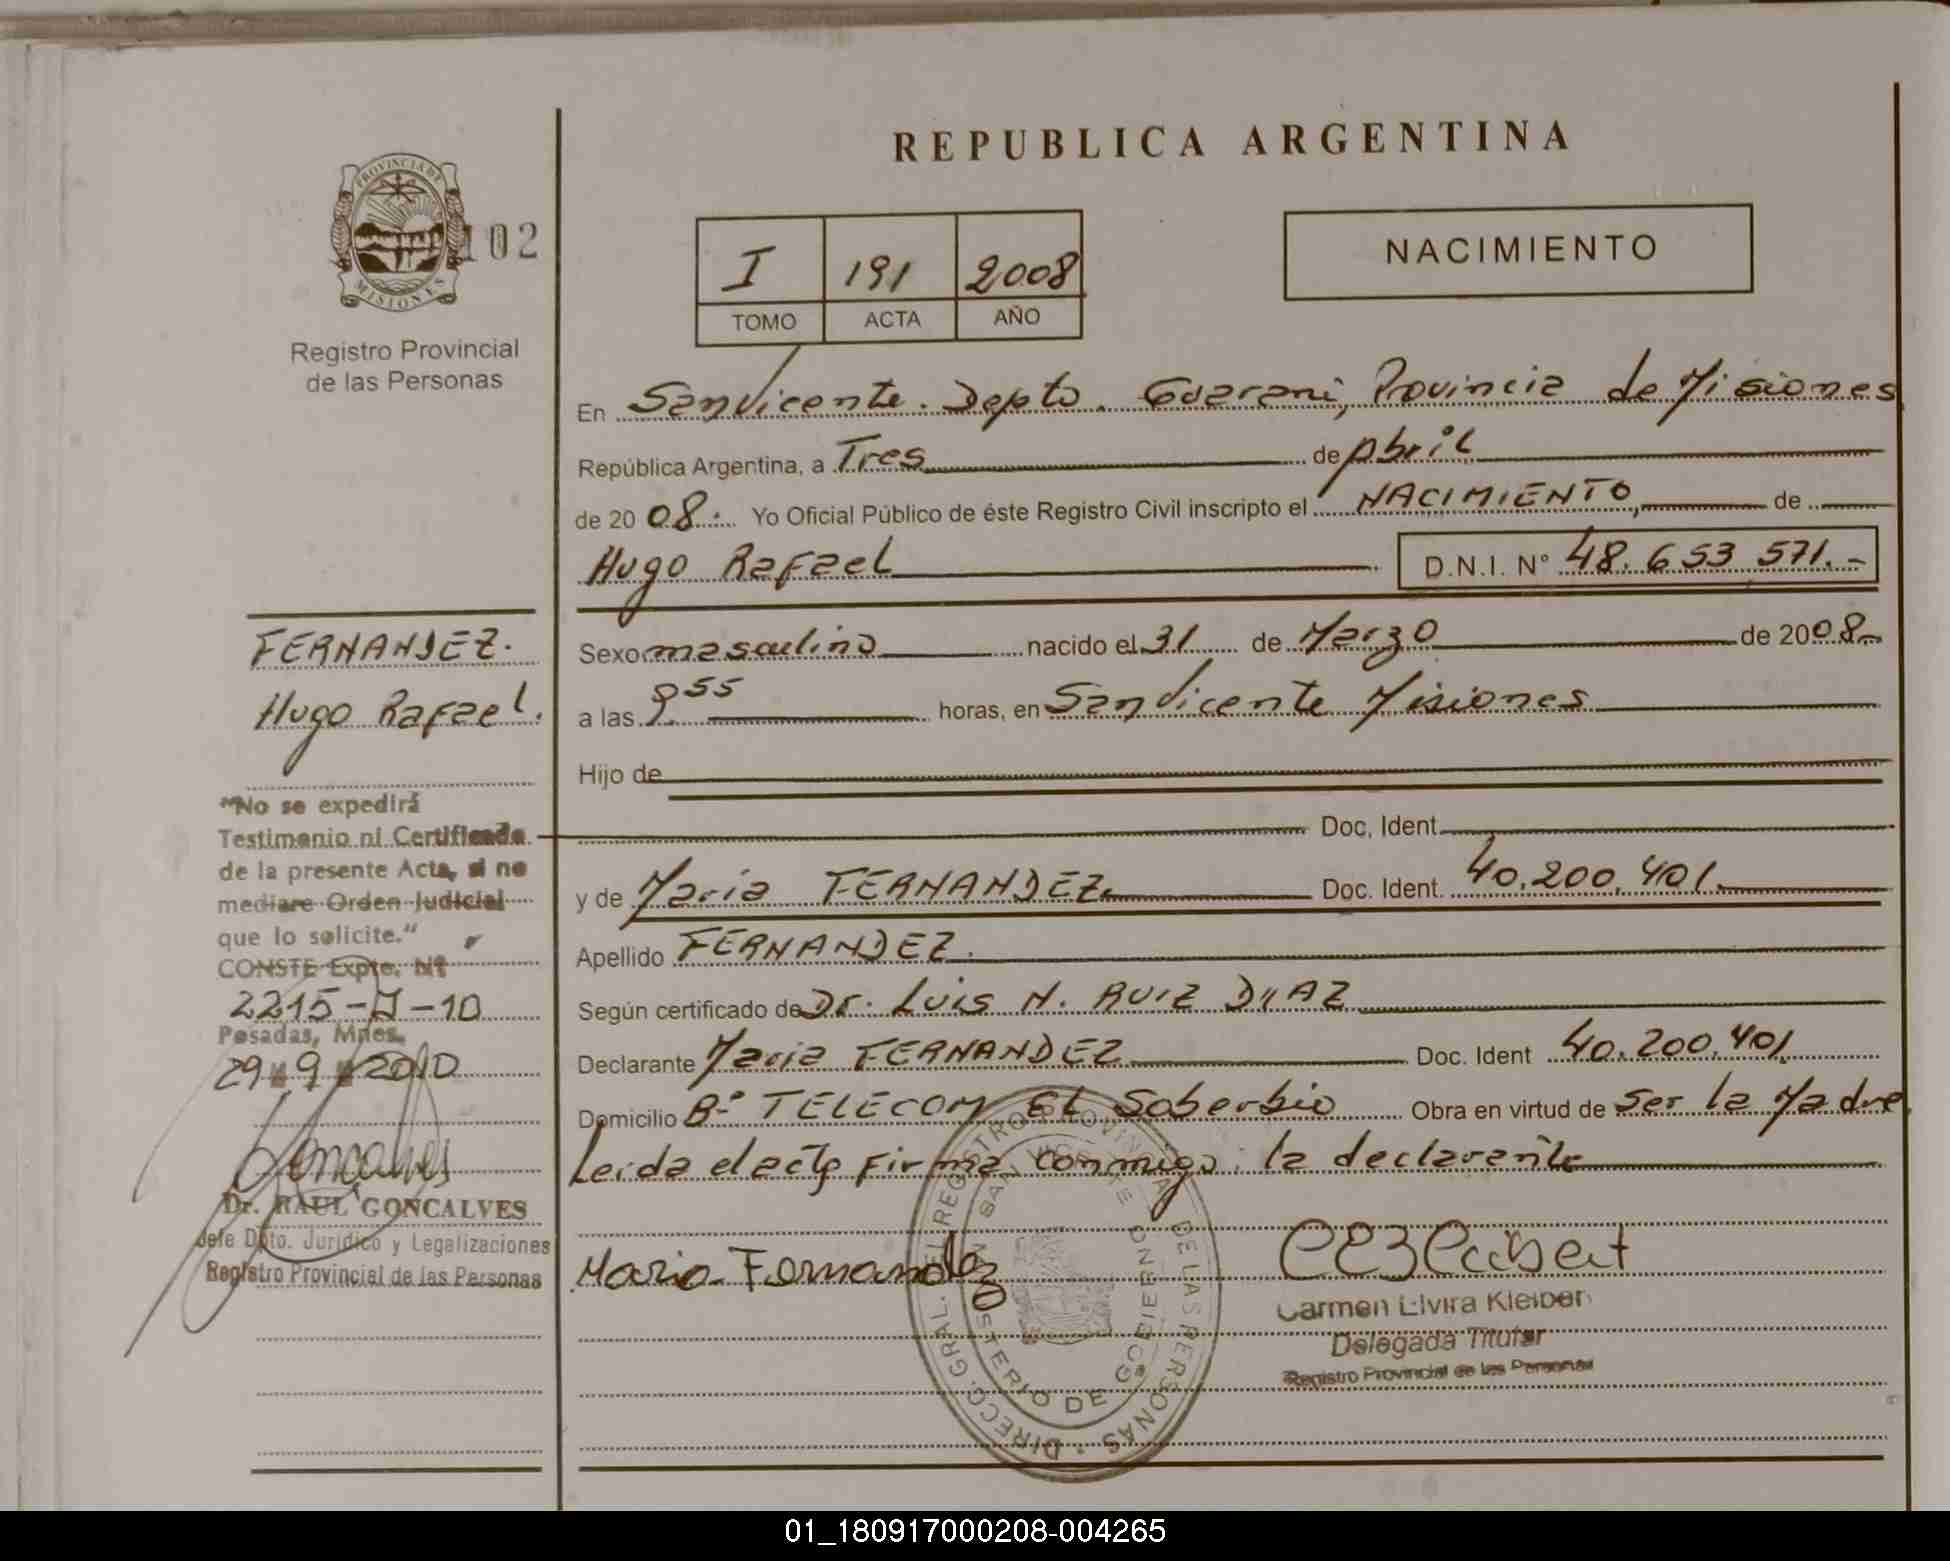 REPUBLICA ARGENTINA
PROVINCIA DE
MISIONES
102
Registro Provincial
de las Personas
I 191 2008
TOMO ACTA AÑO
NACIMIENTO
En San Vicente. Depto. Guarani, Provincia de Misiones
República Argentina, a Tres de Abril
de 2008. Yo Oficial Público de éste Registro Civil inscripto el NACIMIENTO, de
Hugo Rafael D.N.I. N° 48.653.571.-
Sexo masculino nacido el 31 de Marzo de 2008-
a las 9.55 horas, en San Vicente Misiones
Hijo de
Doc, Ident.
y de Maria FERNANDEZ Doc. Ident. 40.200.401.
Apellido FERNANDEZ.
Según certificado de Dr. Luis N. RUIZ DIAZ
Declarante Maria FERNANDEZ Doc. Ident 40.200.401.
Domicilio B° TELECOM El Soberbio Obra en virtud de ser la Madre
Leida el acta firma conmigo: la declarante
Maria Fernandez
Carmen Elvira Kleiber
Delegada Titular
Registro Provincial de las Personas
DIRECC. GRAL. DEL REGISTRO PROVINCIAL DE LAS PERSONAS
SAN VICENTE
MINISTERIO DE GOBIERNO
FERNANDEZ.
Hugo Rafael.
"No se expedirá
Testimonio ni Certificado
de la presente Acta, si no
mediare Orden Judicial
que lo solicite."
CONSTE Expte. Nº
2215-J-10
Posadas, Mnes.
29 9 2010
Goncalves
Dr. RAUL GONCALVES
Jefe Dpto. Jurídico y Legalizaciones
Registro Provincial de las Personas
01_180917000208-004265